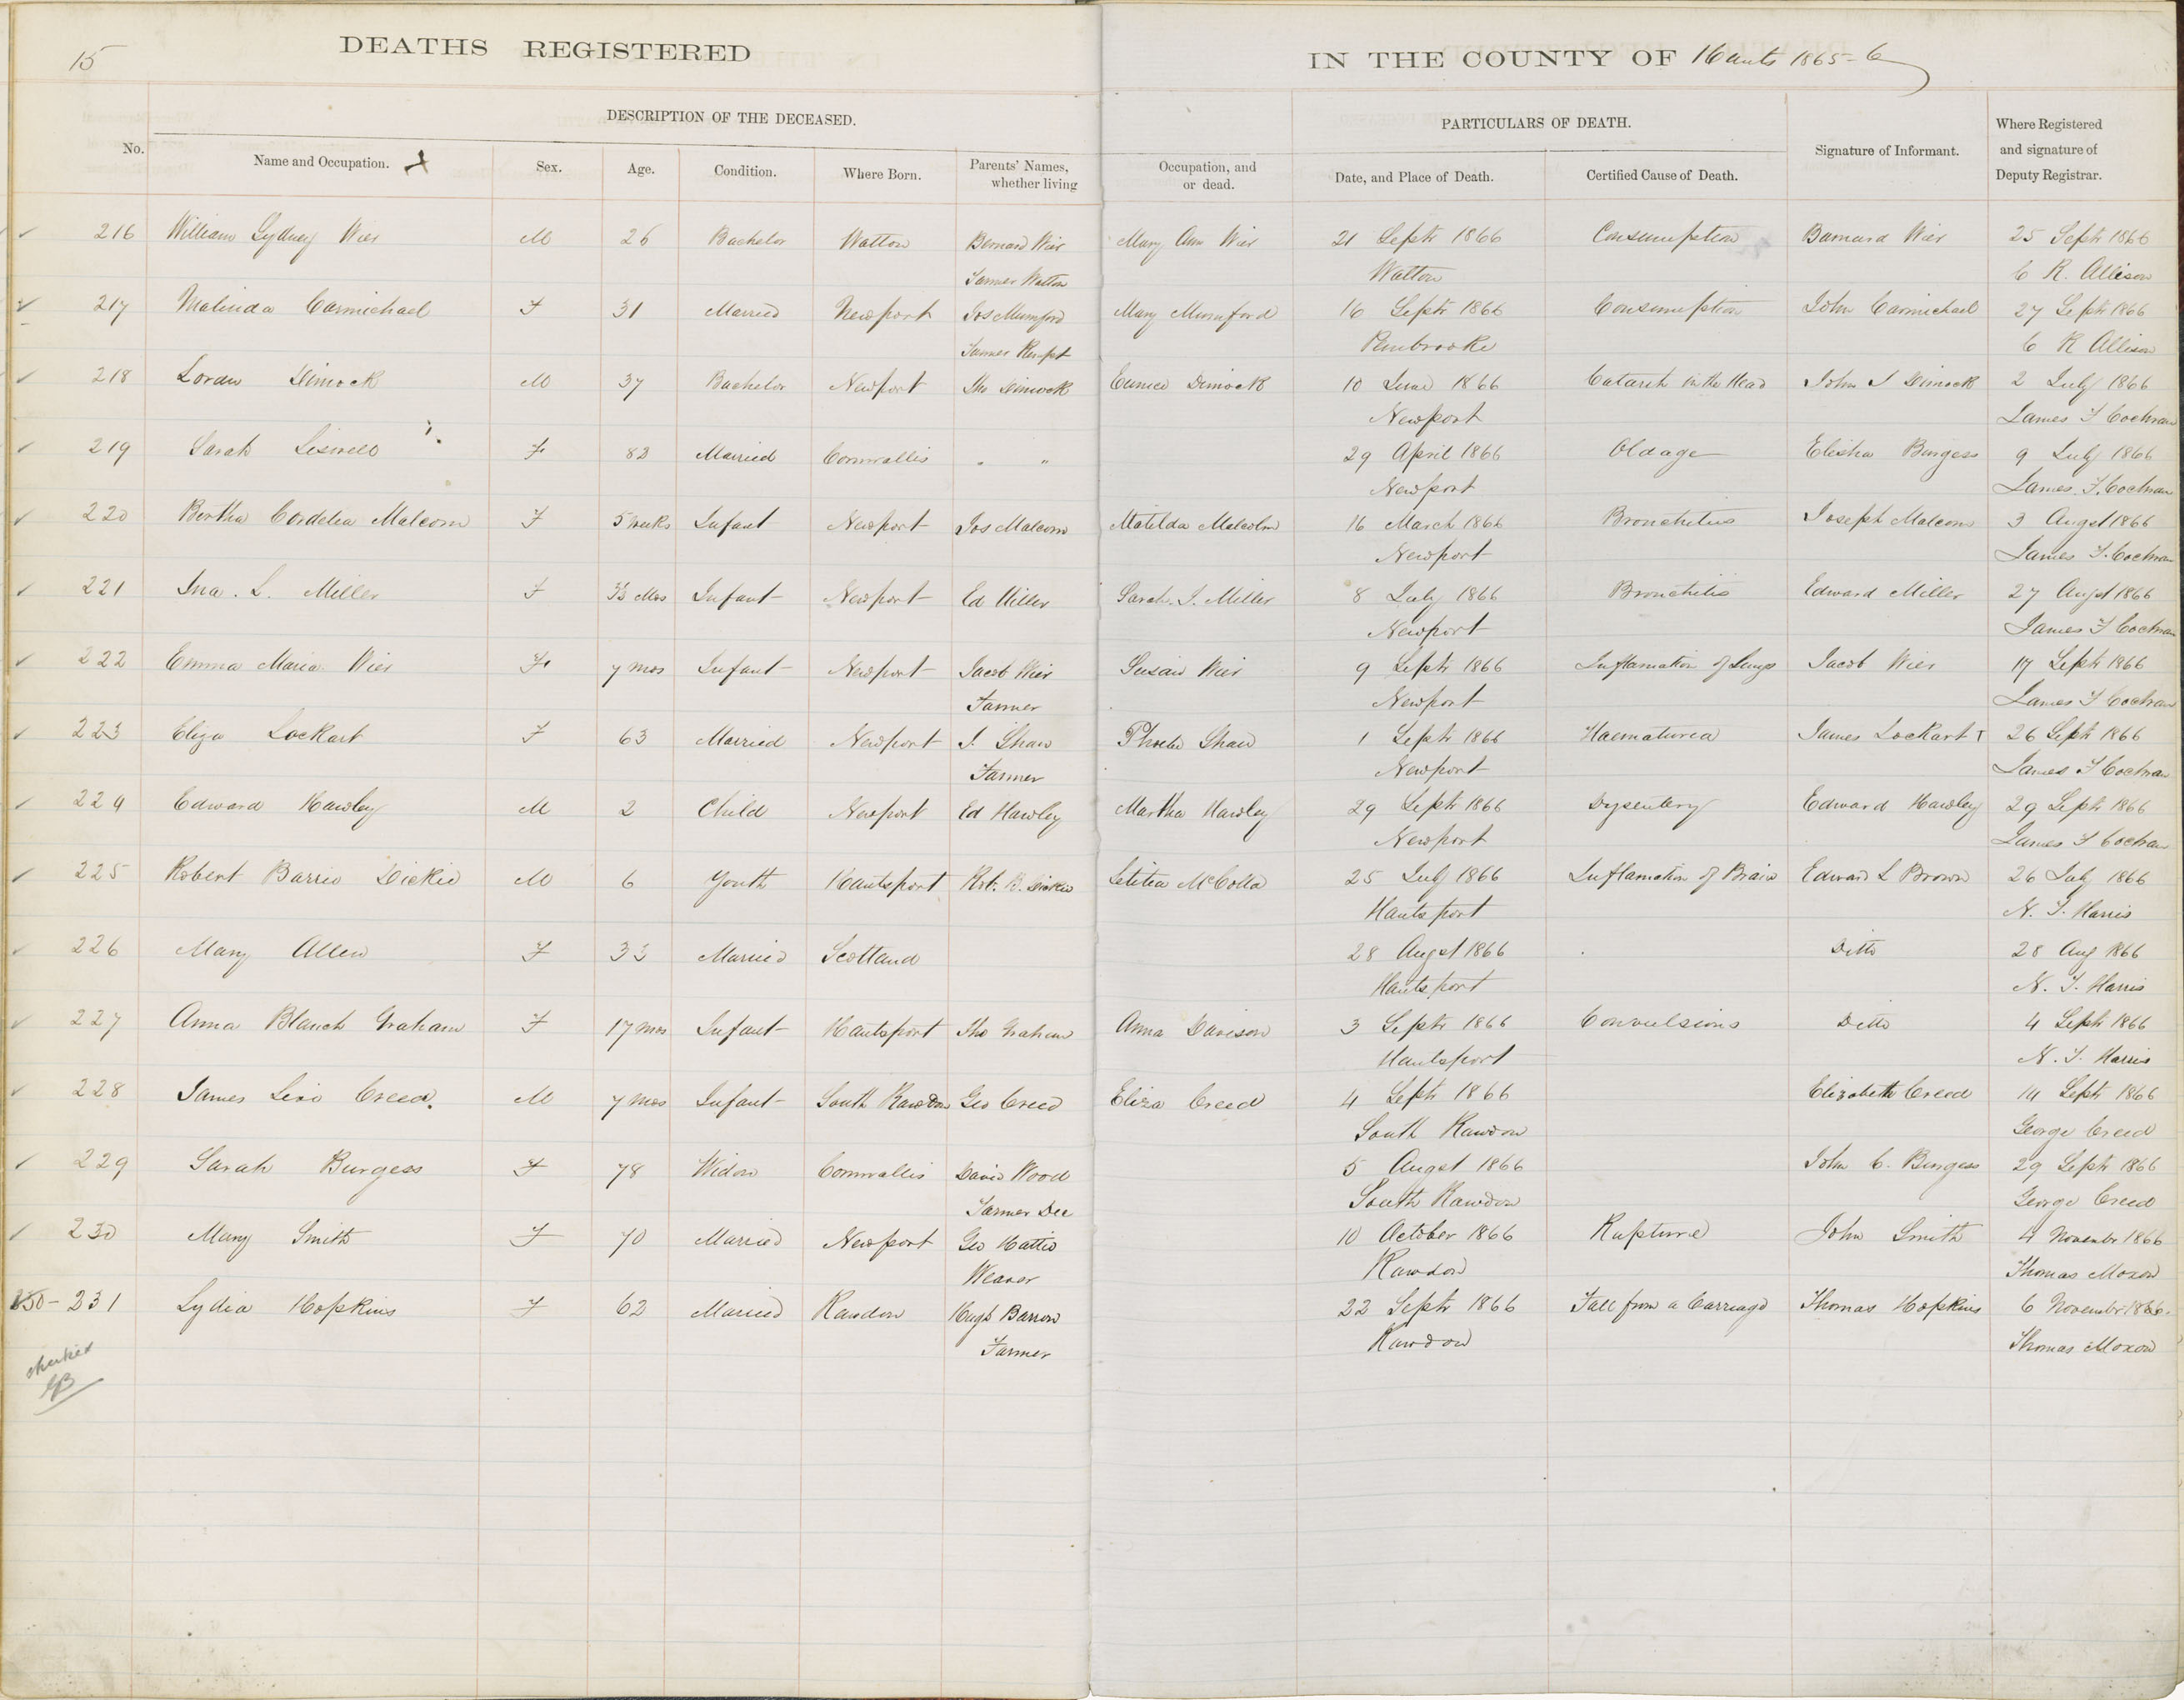 15
DEATHS REGISTERED
IN THE COUNTY OF Hants 1865-6
DESCRIPTION OF THE DECEASED.
PARTICULARS OF DEATH.
No.
Name and Occupation.
Sex.
Age.
Condition.
Where Born.
Parents' Names, whether living
Occupation, and or dead.
Date, and Place of Death.
Certified Cause of Death.
Signature of Informant.
Where Registered and signature of Deputy Registrar.
216 William Sydney Wier M 26 Bachelor Walton Bernard Wier Mary Ann Wier 21 Septr 1866 Consumption Barnard Wier 25 Septr 1866
Farmer Walton Walton C R. Allison
217 Malinda Carmichael F 31 Married Newport Jos Mumford Mary Mumford 16 Septr 1866 Consumption John Carmichael 27 Septr 1866
Farmer Pembrooke C R Allison
218 Dimock M 37 Bachelor Newport Dimock Eunice Dimock 10 June 1866 Catarrh in the Head John I Dimock 2 July 1866
Newport James F Cochran
219 Sarah F 82 Married Cornwallis " " 29 April 1866 Old age Elisha Burgess 9 July 1866
Newport James F. Cochran
220 Bertha Cordelia Malcom F 5 weeks Infant Newport Jos Malcom Matilda Malcolm 16 March 1866 Bronchitus Joseph Malcom 3 Augst 1866
Newport James F. Cochran
221 Ina. L. Miller F 3½ Mos Infant Newport Ed Miller Sarah. J. Miller 8 July 1866 Bronchitis Edward Miller 27 Augst 1866
Newport James F Cochran
222 Emma Maria Wier F. 7 mos Infant Newport Jacob Wier Susan Wier 9 Septr 1866 Inflamation of Lungs Jacob Wier 17 Septr 1866
Farmer Newport James F Cochran
223 Eliza Lockart F 63 Married Newport J. Shaw Phoebe Shaw 1 Septr 1866 Haematurea James Lockart 26 Septr 1866
Farmer Newport James F Cochran
224 Edward Hawley M 2 Child Newport Ed Hawley Martha Hawley 29 Septr 1866 Dysentery Edward Hawley 29 Septr 1866
Newport James F Cochran
225 Robert Barrie Dickie M 6 Youth Hantsport Rt. B. Dickie Letitia McColla 25 July 1866 Inflamation of Brain Edward L Brown 26 July 1866
Hantsport N. T. Harris
226 Mary Allen F 33 Married Scotland 28 Augst 1866 Ditto 28 Aug 1866
Hantsport N. T. Harris
227 Anna Blanch Graham F 17 mos Infant Hantsport Tho Graham Anna Davison 3 Septr 1866 Convulsions Ditto 4 Septr 1866
Hantsport N. T. Harris
228 James Creed. M 7 mos Infant South Rawdon Geo Creed Eliza Creed 4 Septr 1866 Elizabeth Creed 14 Septr 1866
South Rawdon George Creed
229 Sarah Burgess F 78 Widow Cornwallis David Wood 5 Augst 1866 John C. Burgess 29 Septr 1866
Farmer Dec South Rawdon George Creed
230 Mary Smith F 70 Married Newport Geo Hattie 10 October 1866 Rupture John Smith 4 Novembr 1866
Weaver Rawdon Thomas Moxon
231 Lydia Hopkins F 62 Married Rawdon Hugh Barron 22 Septr 1866 Fall from a Carriage Thomas Hopkins 6 November 1866.
Farmer Rawdon Thomas Moxon
checked